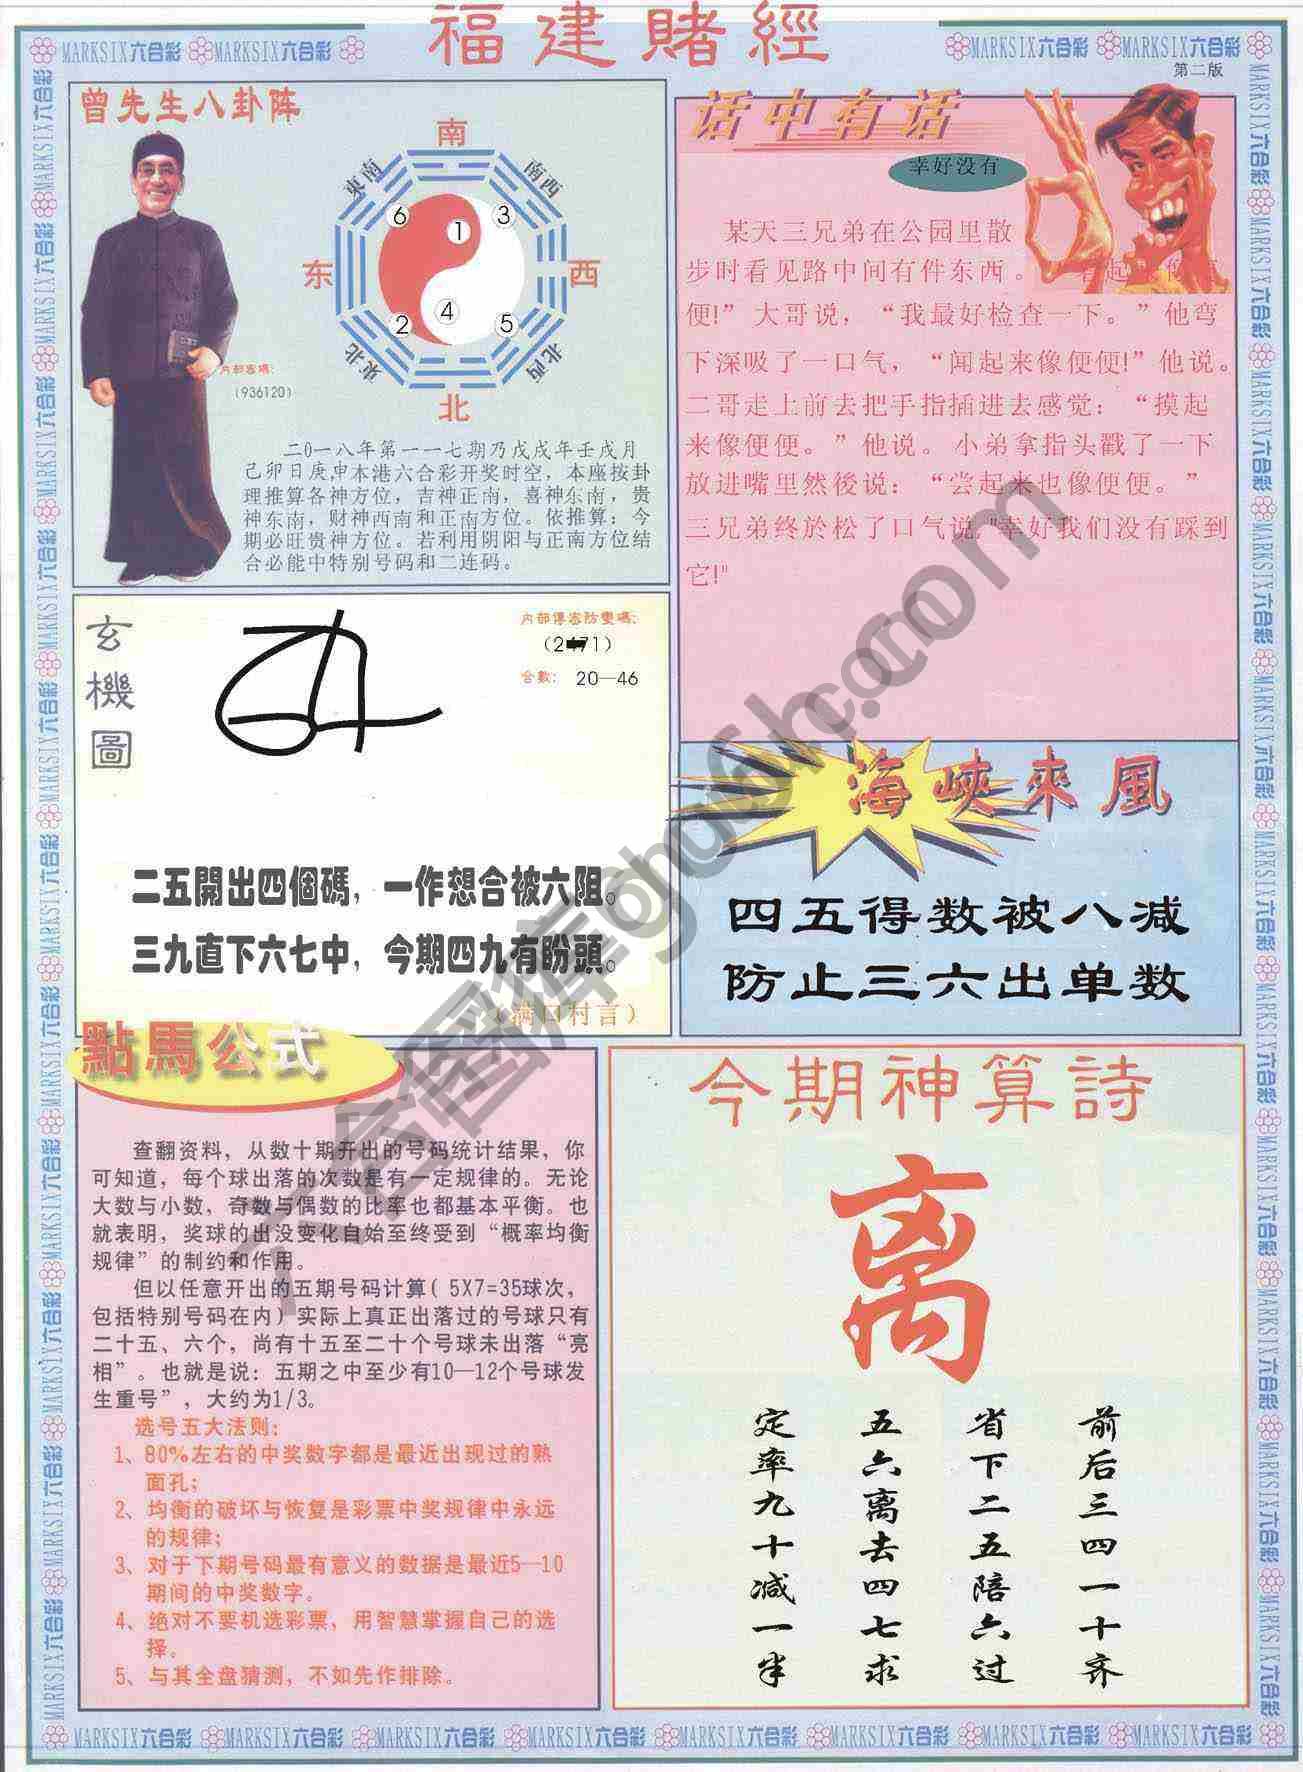 福建賭經
MARKSIX六合彩 MARKSIX六合彩
MARKSIX六合彩 MARKSIX六合彩
第二版
曾先生八卦阵
南
東南
南西
6 1 3
东
西
2 4 5
東北
北西
北
内部密碼:
(936120)
二〇一八年第一一七期乃戊戌年壬戌月
己卯日庚申本港六合彩开奖时空，本座按卦
理推算各神方位，吉神正南，喜神东南，贵
神东南，财神西南和正南方位。依推算：今
期必旺贵神方位。若利用阴阳与正南方位结
合必能中特别号码和二连码。
话中有话
幸好没有
某天三兄弟在公园里散
步时看见路中间有件东西。
便!”大哥说，“我最好检查一下。”他弯
下深吸了一口气，“闻起来像便便!”他说。
二哥走上前去把手指插进去感觉：“摸起
来像便便。”他说。小弟拿指头戳了一下
放进嘴里然後说：“尝起来也像便便。”
三兄弟终於松了口气说"幸好我们没有踩到
它!"
玄機圖
内部傳密防變碼:
合數: 20—46
二五開出四個碼，一作想合被六阻。
三九直下六七中，今期四九有盼頭。
（满口村言）
海峽來風
四五得数被八减
防止三六出单数
點馬公式
查翻资料，从数十期开出的号码统计结果，你
可知道，每个球出落的次数是有一定规律的。无论
大数与小数，奇数与偶数的比率也都基本平衡。也
就表明，奖球的出没变化自始至终受到“概率均衡
规律”的制约和作用。
但以任意开出的五期号码计算( 5X7=35球次，
包括特别号码在内）实际上真正出落过的号球只有
二十五、六个，尚有十五至二十个号球未出落“亮
相”。也就是说：五期之中至少有10—12个号球发
生重号”，大约为1/3。
选号五大法则:
1、80%左右的中奖数字都是最近出现过的熟
面孔;
2、均衡的破坏与恢复是彩票中奖规律中永远
的规律;
3、对于下期号码最有意义的数据是最近5—10
期间的中奖数字。
4、绝对不要机选彩票，用智慧掌握自己的选
择。
5、与其全盘猜测，不如先作排除。
今期神算詩
离
前后三四一十齐
省下二五陪六过
五六离去四七求
定率九十减一半
MARKSIX六合彩 MARKSIX六合彩 MARKSIX六合彩 MARKSIX六合彩 MARKSIX六合彩 MARKSIX六合彩 MARKSIX六合彩 MARKSIX六合彩